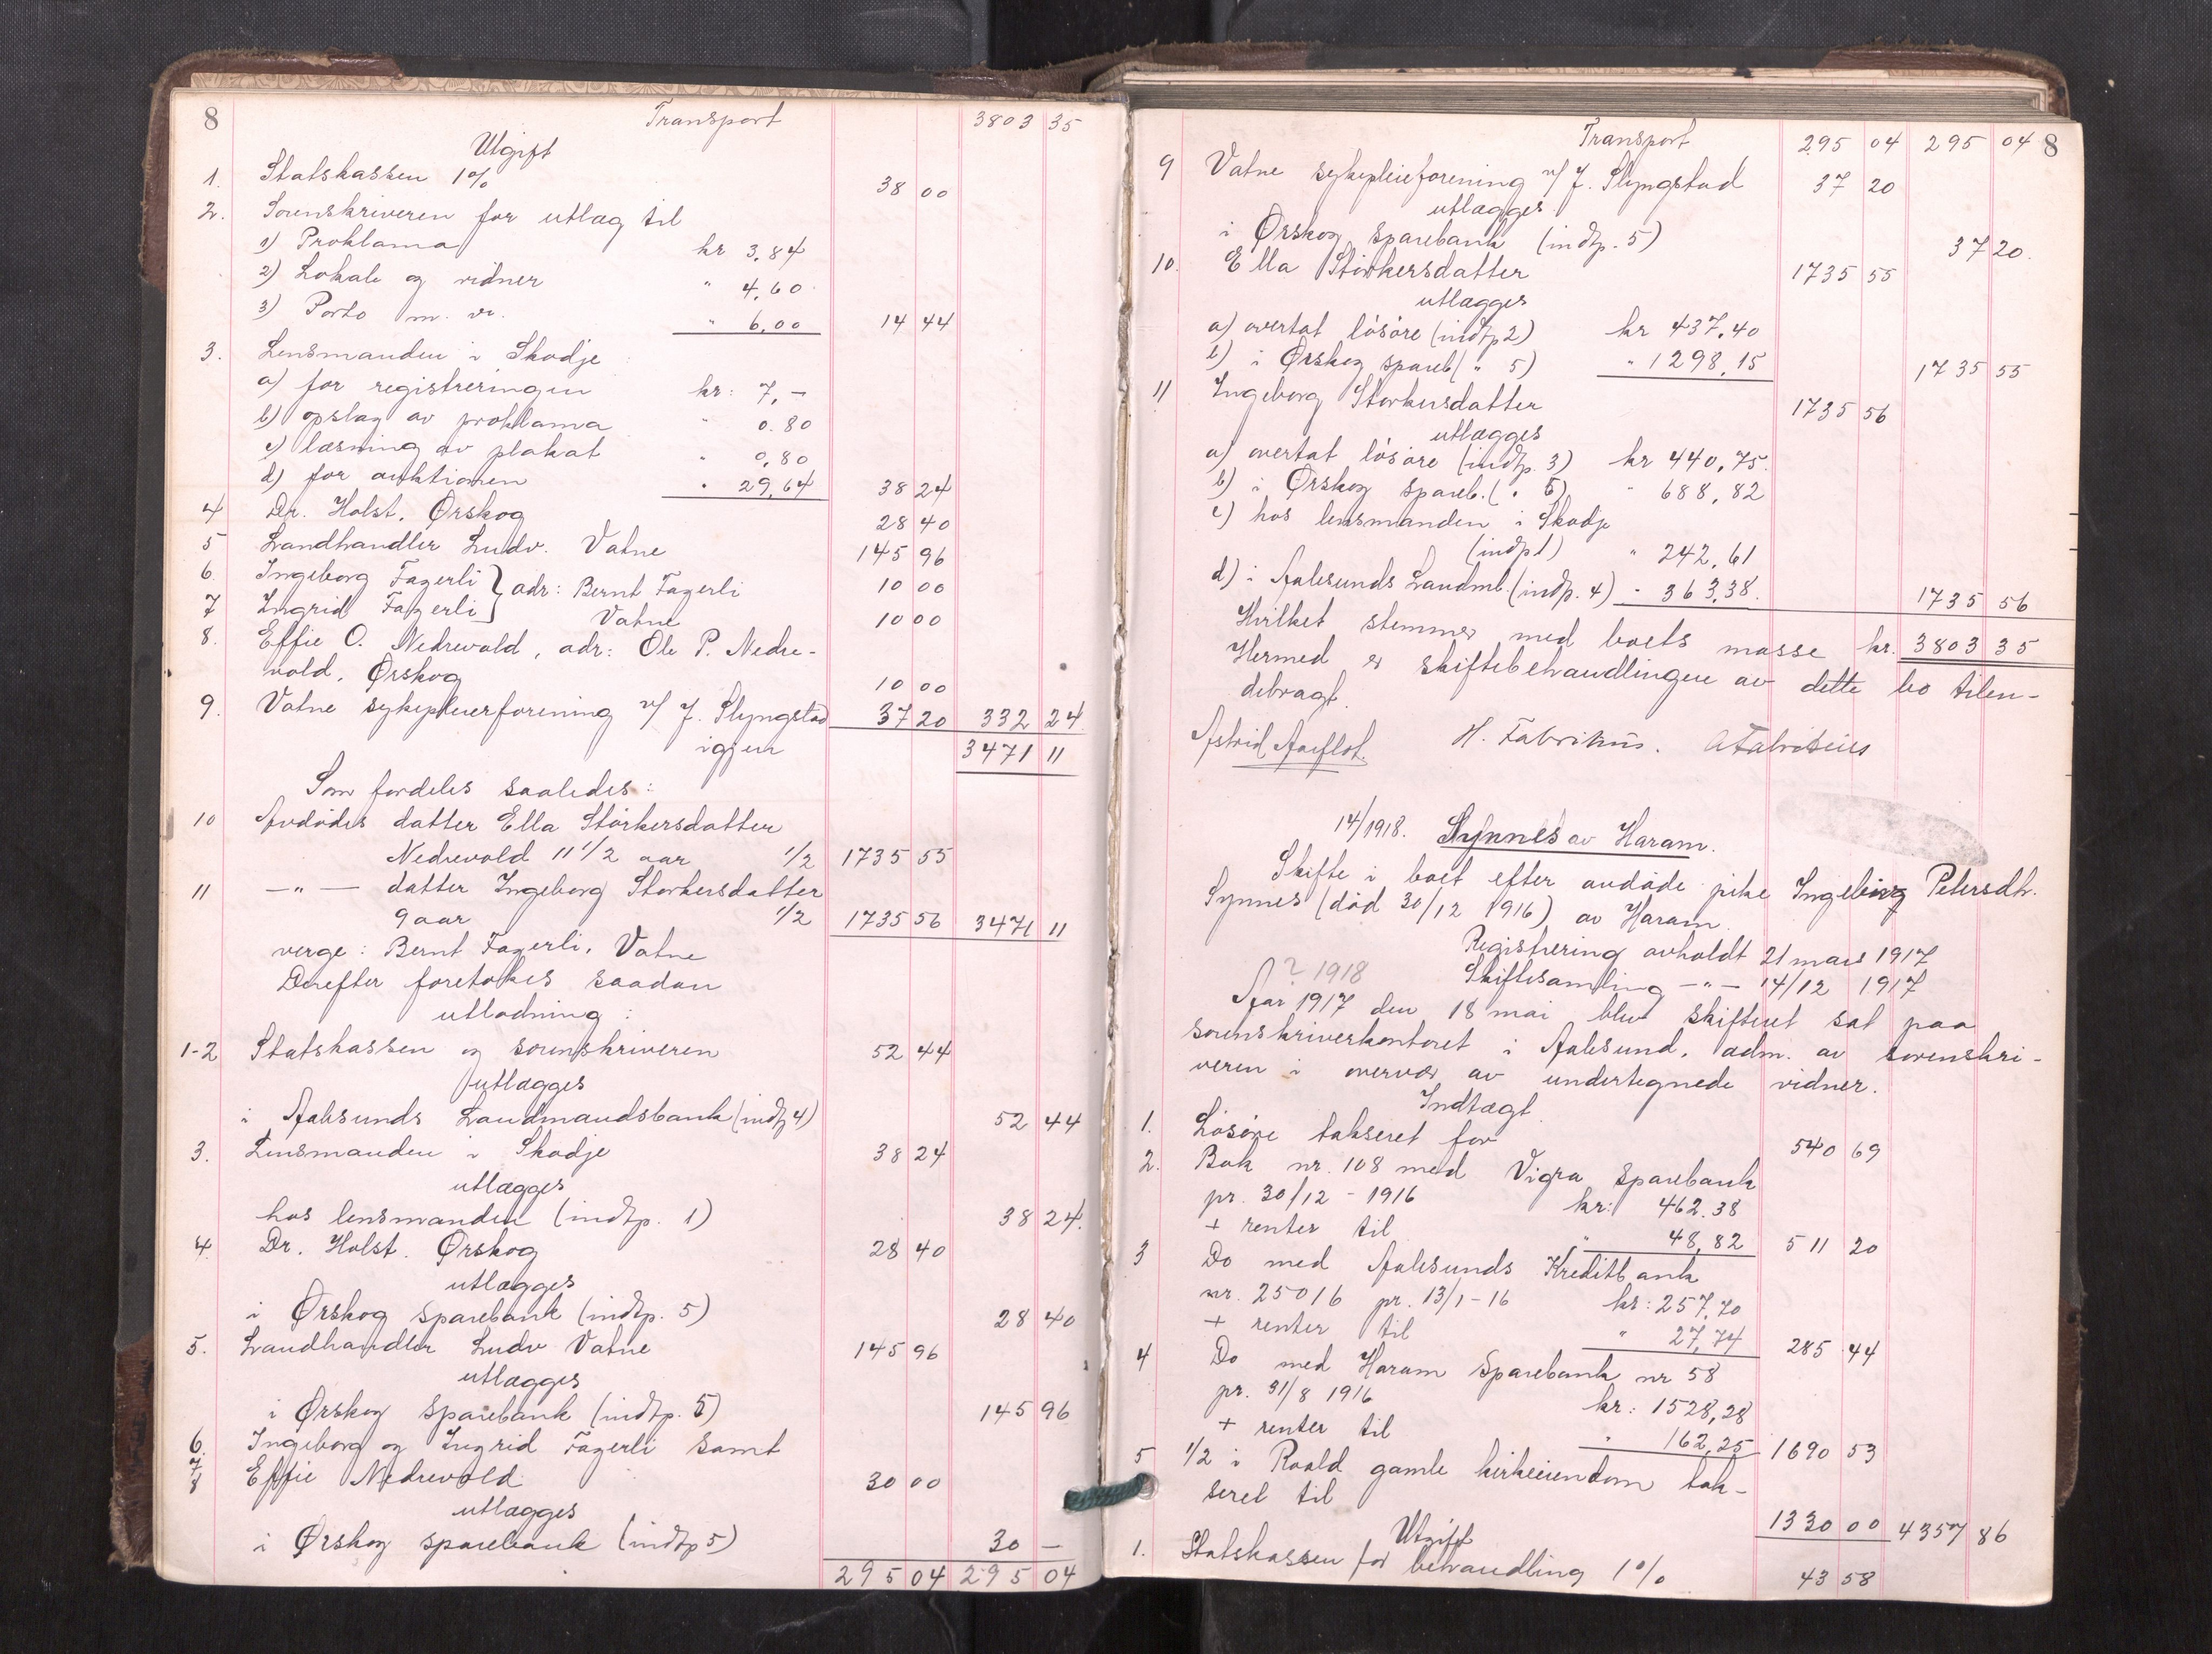 8 Transport 3803 35
Utgift
1. Statskassen 1% 38 00
2. Sorenskriveren for utlæg til
1) Proklama kr 3,84
2) Lokale og vidner " 4,60
3) Porto m. v. " 6,00 14 44
3. Lensmanden i Skodje
a) for registreringen kr: 7,-
b) opslag av proklama " 0.80
c) læsning av plakat " 0,80
d) for auktionen " 29,64 38 24
4 Dr. Holst. Ørskog 28 40
5 Landhandler Ludv. Vatne 145 96
6. Ingeborg Fagerli } adr: Bernt Fagerli 10 00
7 Ingrid Fagerli } Vatne 10 00
8. Effie O. Nedrevold, adr: Ole P. Nedre-
vold, Ørskog 10 00
9. Vatne sykepleierforening v/ J. Slyngstad 37 20 332 24
igjen 3471 11
Som fordeles saaledes:
10 Avdødes datter Ella Størkersdatter
Nedrevold 11 1/2 aar 1/2 1735 55
11 —"— datter Ingeborg Størkersdatter
9 aar 1/2 1735 56 3471 11
verge: Bernt Fagerli, Vatne
Derefter foretokes saadan
utlodning:
1-2 Statskassen og sorenskriveren 52 44
utlægges
i Aalesunds Landmandsbank (indtp 4) 52 44
3. Lensmanden i Skodje 38 24
utlægges
hos lensmanden (indtp. 1) 38 24.
4. Dr. Holst. Ørskog 28 40
utlægges
i Ørskog Sparebank (indtp. 5) 28 40
5. Landhandler Ludv Vatne 145 96
utlægges
i Ørskog Sparebank (indtp. 5) 145 96
6. Ingeborg og Ingrid Fagerli samt
7
8 Effie Nedrevold 30 00
utlægges
i Ørskog sparebank (indtp 5) 30 —
295 04 295 04
Transport 295 04 295 04 8
9 Vatne sykepleieforening v/ J. Slyngstad 37 20
utlægges
i Ørskog Sparebank (indtp. 5) 37 20.
10. Ella Størkersdatter 1735 55
utlægges
a) overtat løsøre (indtp 2) kr 437.40
b) i Ørskog spareb. ( " 5) " 1298,15 1735 55
11 Ingeborg Størkersdatter 1735 56
utlægges
a) overtat løsøre (indtp. 3) kr 440,75.
b) i Ørskog Spareb. ( " 5) " 688,82
c) hos lensmanden i Skodje
(indtp 1) " 242,61
d) i Aalesunds Landmb. (indtp. 4) - 363,38. 1735 56
Hvilket stemmer med boets masse kr. 3803 35
Hermed er skiftebehandlingen av dette bo tilen-
debragt.
Astrid Aarflot. H. Fabritius. A Fabritius
14/1918. Synnes av Haram.
Skifte i boet efter avdøde pike Ingeborg Petersdtr.
Synnes (død 30/12 1916) av Haram.
Registrering avholdt 21 mars 1917
? 1918 Skiftesamling —"— 14/12 1917
Aar 1917 den 18 mai blev skifteret sat paa
sorenskriverkontoret i Aalesund, adm. av sorenskri-
veren i overvær av undertegnede vidner.
Indtægt
1. Løsøre takseret for 540 69
2. Bok nr. 108 med Vigra Sparebank
pr. 30/12 - 1916 kr: 462.38
+ renter til " 48,82 511 20
3 Do med Aalesunds Kreditbank
nr. 25016 pr. 13/1-16 kr: 257,70
+ renter til " 27,74 285 44
4 Do med Haram Sparebank nr 58
pr. 31/8 1916 kr: 1528,28
+ renter til " 162,25 1690 53
5 1/2 i Roald gamle kirkeeiendom tak-
seret til 1330 00 4357 86
Utgift
1. Statskassen for behandling 1% 43 58